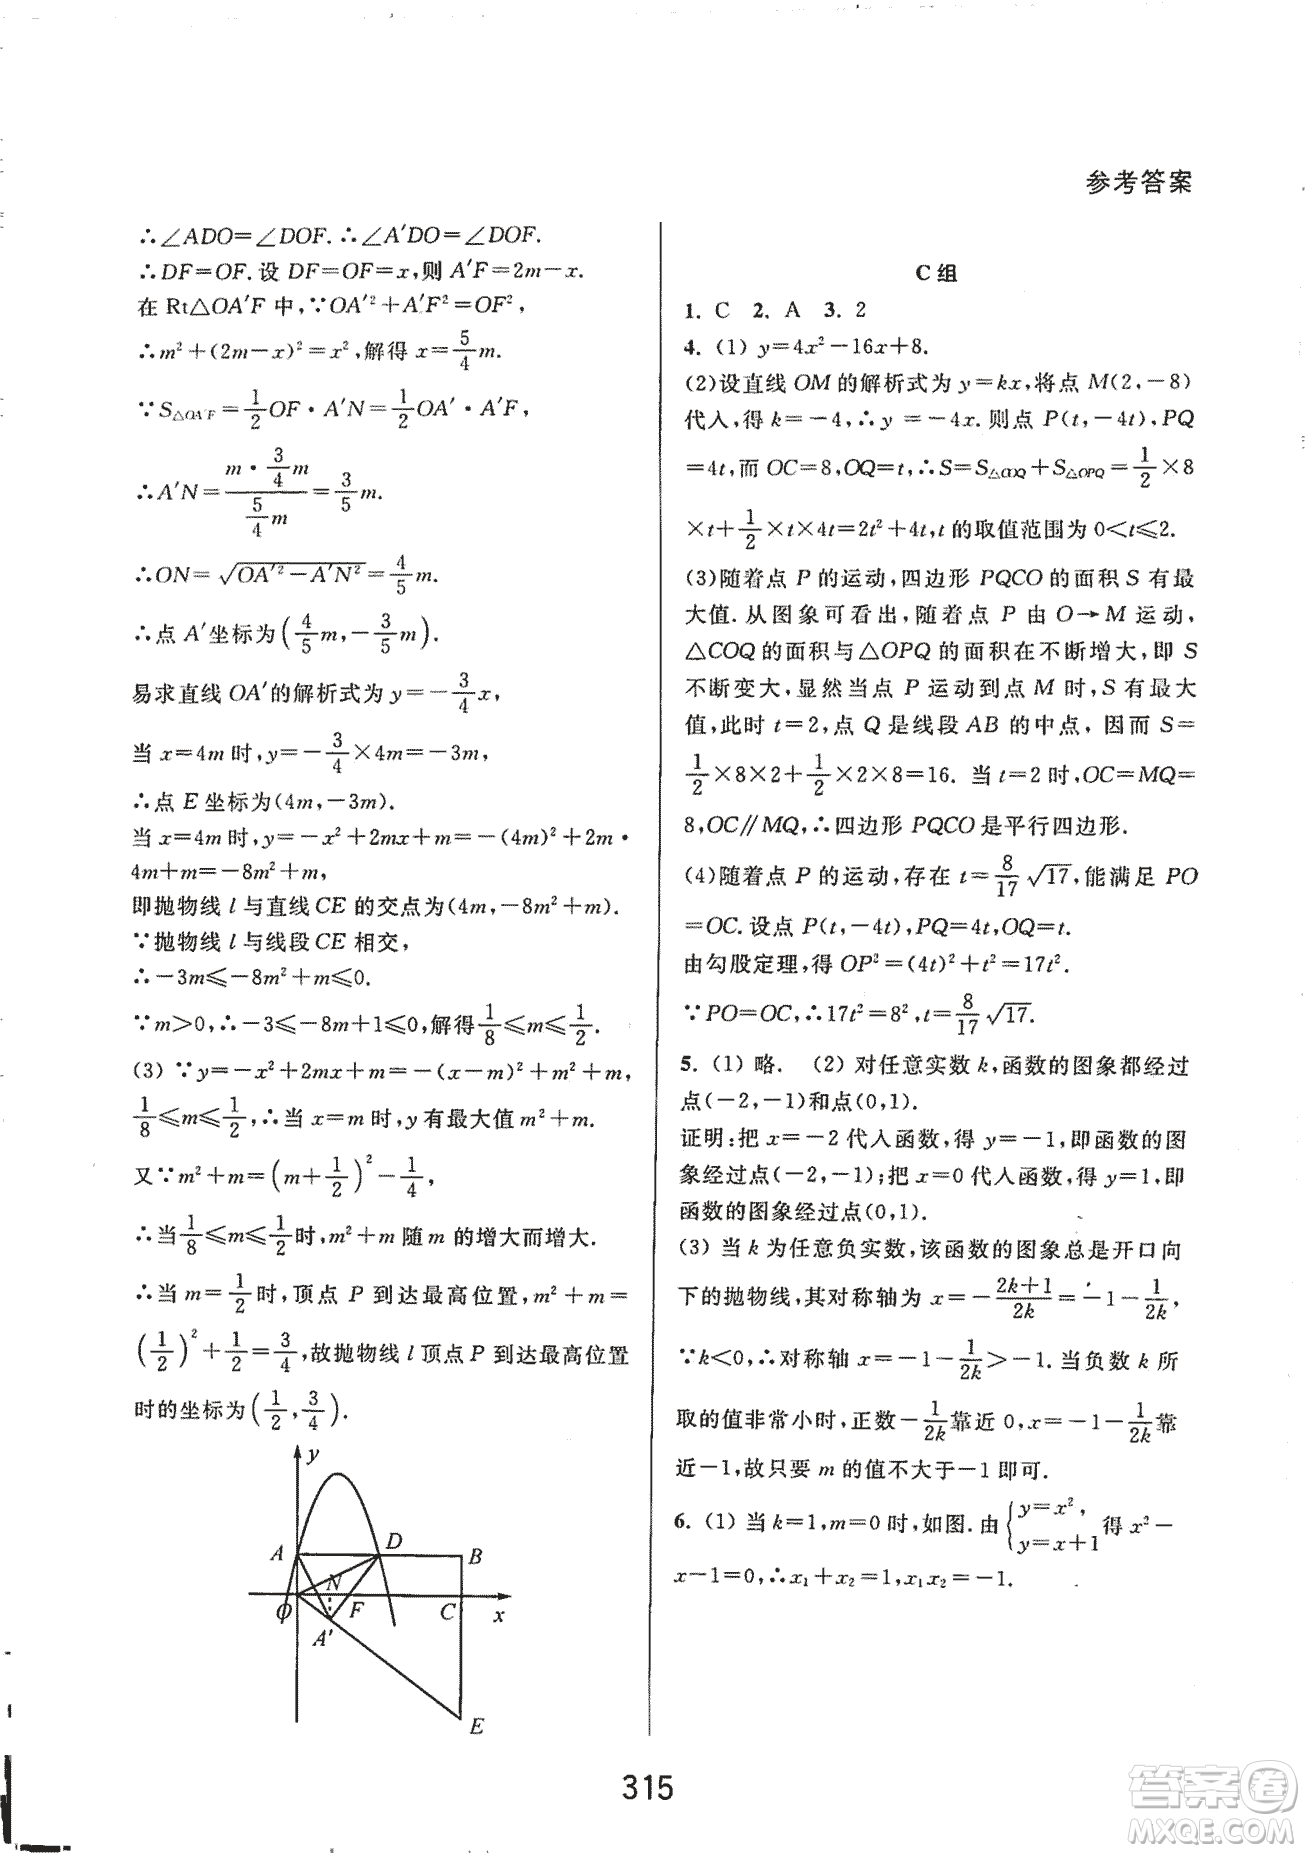 参考答案
∴∠ADO=∠DOF.∴∠A′DO=∠DOF.
∴DF=OF.设 DF=OF=x,则 A′F=2m-x.
在 Rt△OA′F 中,∵OA′²+A′F²=OF²,
∴m²+(2m-x)²=x²,解得 x=5/4 m.
∵S△OA′F=1/2 OF·A′N=1/2 OA′·A′F,
∴A′N=(m·3/4 m)/(5/4 m)=3/5 m.
∴ON=√(OA′²-A′N²)=4/5 m.
∴点 A′坐标为(4/5 m,-3/5 m).
易求直线 OA′的解析式为 y=-3/4 x,
当 x=4m 时,y=-3/4×4m=-3m,
∴点 E 坐标为(4m,-3m).
当 x=4m 时,y=-x²+2mx+m=-(4m)²+2m·
4m+m=-8m²+m,
即抛物线 l 与直线 CE 的交点为(4m,-8m²+m).
∵抛物线 l 与线段 CE 相交,
∴-3m≤-8m²+m≤0.
∵m>0,∴-3≤-8m+1≤0,解得 1/8≤m≤1/2.
(3) ∵y=-x²+2mx+m=-(x-m)²+m²+m,
1/8≤m≤1/2,∴当 x=m 时,y 有最大值 m²+m.
又∵m²+m=(m+1/2)²-1/4,
∴当 1/8≤m≤1/2 时,m²+m 随 m 的增大而增大.
∴当 m=1/2 时,顶点 P 到达最高位置,m²+m=
(1/2)²+1/2=3/4,故抛物线 l 顶点 P 到达最高位置
时的坐标为(1/2,3/4).
y
A
D
B
N
O
F
C
x
A′
E
C 组
1. C 2. A 3. 2
4. (1) y=4x²-16x+8.
(2)设直线 OM 的解析式为 y=kx,将点 M(2,-8)
代入,得 k=-4,∴y=-4x.则点 P(t,-4t),PQ
=4t,而 OC=8,OQ=t,∴S=S△COQ+S△OPQ=1/2×8
×t+1/2×t×4t=2t²+4t,t 的取值范围为 0<t≤2.
(3)随着点 P 的运动,四边形 PQCO 的面积 S 有最
大值.从图象可看出,随着点 P 由 O→M 运动,
△COQ 的面积与△OPQ 的面积在不断增大,即 S
不断变大,显然当点 P 运动到点 M 时,S 有最大
值,此时 t=2,点 Q 是线段 AB 的中点,因而 S=
1/2×8×2+1/2×2×8=16. 当 t=2 时,OC=MQ=
8,OC∥MQ,∴四边形 PQCO 是平行四边形.
(4)随着点 P 的运动,存在 t=8/17 √17,能满足 PO
=OC.设点 P(t,-4t),PQ=4t,OQ=t.
由勾股定理,得 OP²=(4t)²+t²=17t².
∵PO=OC,∴17t²=8²,t=8/17 √17.
5. (1) 略. (2) 对任意实数 k,函数的图象都经过
点(-2,-1)和点(0,1).
证明:把 x=-2 代入函数,得 y=-1,即函数的图
象经过点(-2,-1);把 x=0 代入函数,得 y=1,即
函数的图象经过点(0,1).
(3) 当 k 为任意负实数,该函数的图象总是开口向
下的抛物线,其对称轴为 x=-(2k+1)/2k=-1-1/2k,
∵k<0,∴对称轴 x=-1-1/2k>-1.当负数 k 所
取的值非常小时,正数-1/2k 靠近 0,x=-1-1/2k 靠
近-1,故只要 m 的值不大于-1 即可.
6. (1) 当 k=1,m=0 时,如图.由{y=x², y=x+1 得 x²-
x-1=0,∴x₁+x₂=1,x₁x₂=-1.
315
答案圈
MXQE.COM